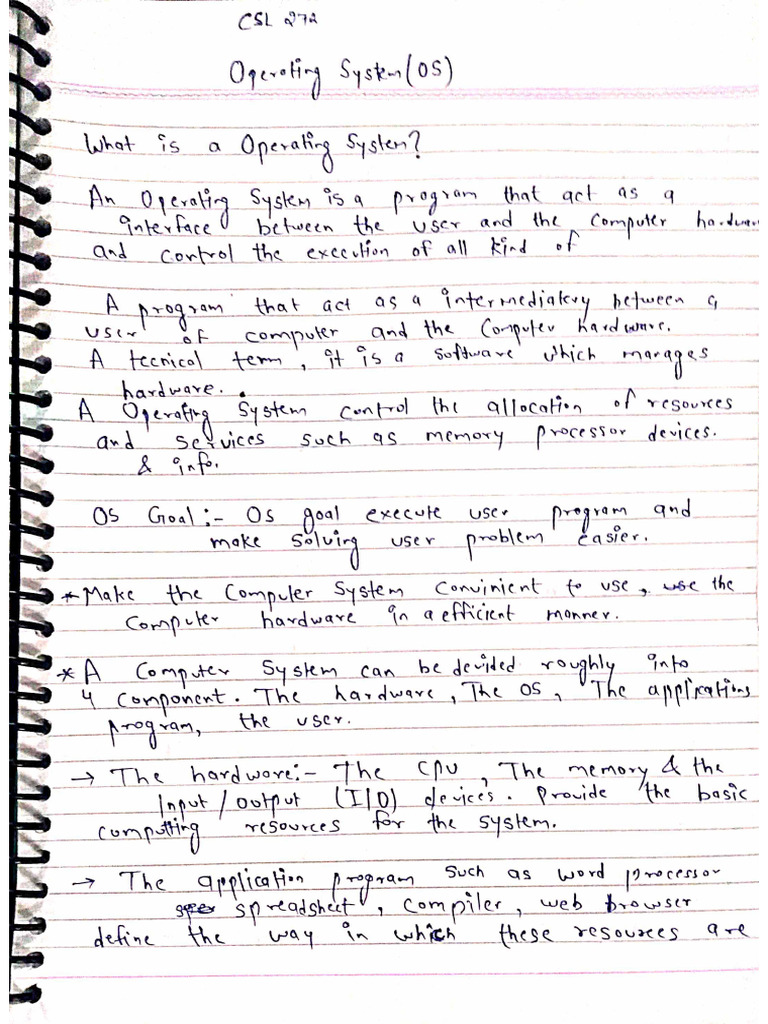 CSL 272
Operating System (OS)
What is a Operating System?
An Operating System is a program that act as a
interface between the user and the computer hardware
and control the execution of all kind of
A program that act as a intermediatery between a
user of computer and the Computer hardware.
A tecnical term, it is a software which manages
hardware.
A Operating System control the allocation of resources
and services such as memory processor devices.
& info.
OS Goal:- OS goal execute user program and
make solving user problem easier.
* Make the Computer System convinient to use, use the
computer hardware in a efficient manner.
* A Computer System can be devided roughly into
4 component. The hardware, The OS, The applications
program, the user.
→ The hardware:- The CPU, The memory & the
Input/output (I/O) devices. Provide the basic
computting resources for the system.
→ The application program such as word processor
spreadsheet, compiler, web browser
define the way in which these resources are